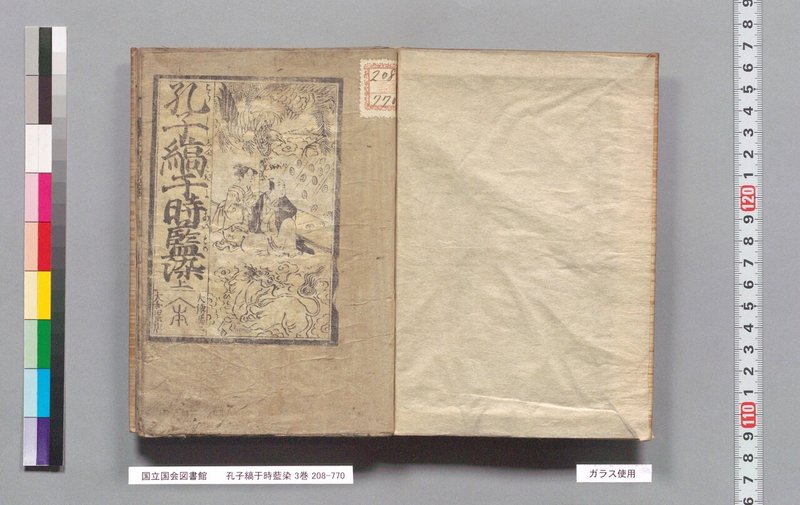 孔子縞于時藍染 上
大和田
208
770
国立国会図書館　孔子縞于時藍染 3巻 208-770
ガラス使用
9
8
7
6
5
4
3
2
1
120
9
8
7
6
5
4
3
2
1
110
9
8
7